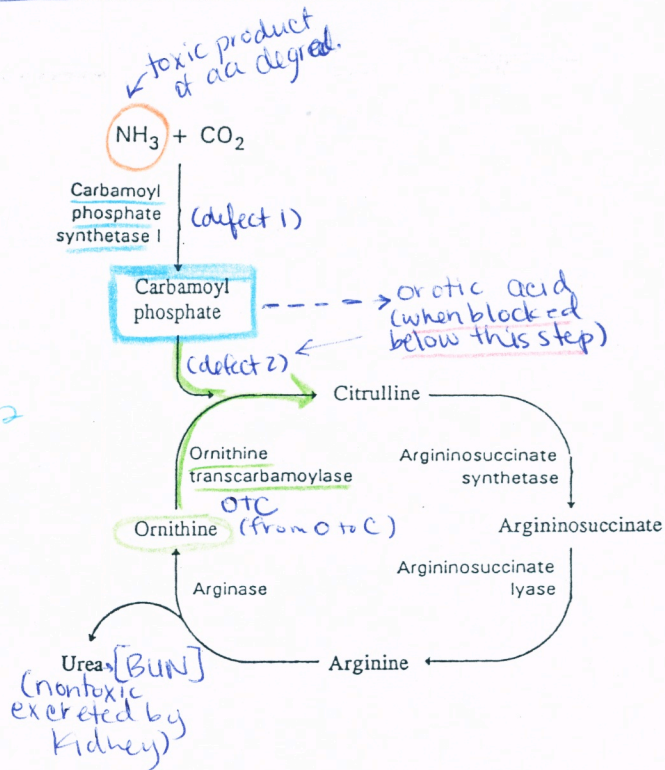 toxic product
of aa degrad.
NH3 + CO2
Carbamoyl
phosphate
synthetase I
(defect 1)
Carbamoyl
phosphate
orotic acid
(when blocked
below this step)
(defect 2)
Citrulline
2
Ornithine
transcarbamoylase
OTC
(from O to C)
Ornithine
Argininosuccinate
synthetase
Argininosuccinate
Argininosuccinate
lyase
Arginase
Urea [BUN]
(nontoxic
excreted by
kidney)
Arginine